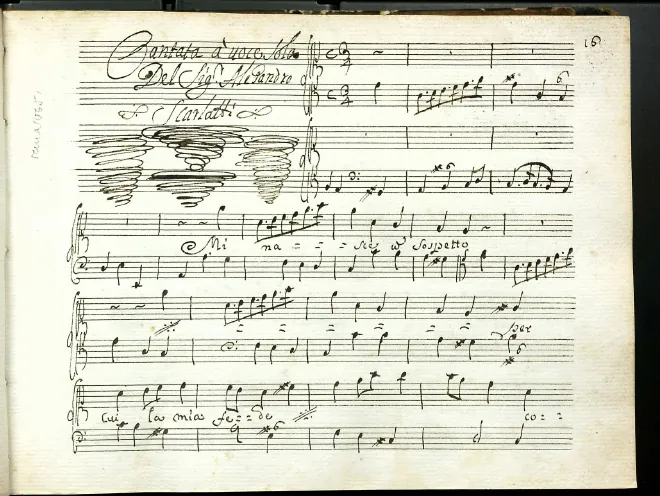 16
Cantata à voce sola
Del Sig.r Alesandro
Scarlatti
6
6
Mi na - - - sce un Sospetto
= = = = = per
6
cui la mia fe = = de co = =
6